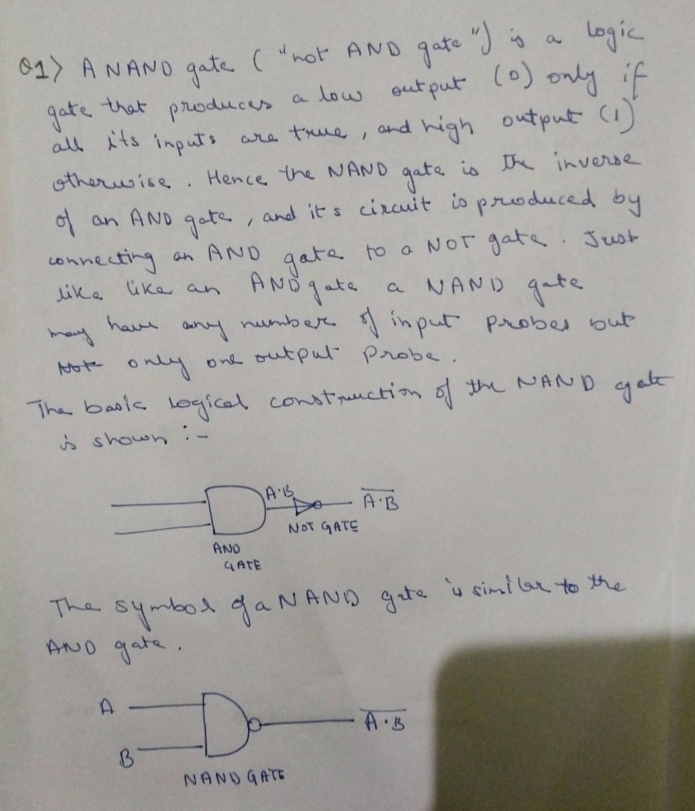 Q1> A NAND gate ( "not AND gate") is a logic
gate that produces a low output (0) only if
all its inputs are true, and high output (1)
otherwise. Hence the NAND gate is the inverse
of an AND gate, and its circuit is produced by
connecting an AND gate to a NOT gate. Just
like like an AND gate a NAND gate
may have any number of input probes but
only one output probe.
The basic logical construction of the NAND gate
is shown :-
A·B
A̅·̅B̅
NOT GATE
AND
GATE
The symbol of a NAND gate is similar to the
AND gate.
A
A̅·̅B̅
B
NAND GATE